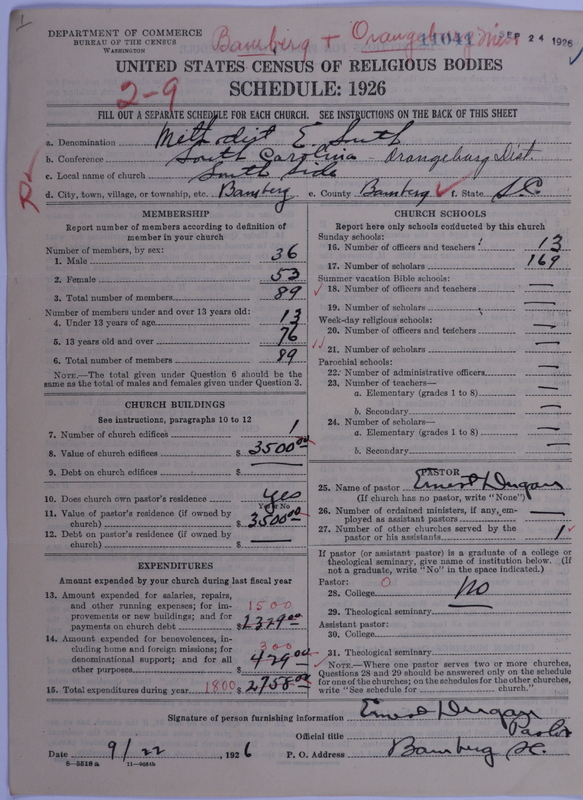 1
DEPARTMENT OF COMMERCE
BUREAU OF THE CENSUS
WASHINGTON
Bamberg + Orangeburg
11041 SEP 24 1926
UNITED STATES CENSUS OF RELIGIOUS BODIES
SCHEDULE: 1926
2-9
FILL OUT A SEPARATE SCHEDULE FOR EACH CHURCH. SEE INSTRUCTIONS ON THE BACK OF THIS SHEET
a. Denomination Methodist E. South
b. Conference South Carolina - Orangeburg Dist.
c. Local name of church South Side
d. City, town, village, or township, etc. Bamberg e. County Bamberg f. State S.C.
MEMBERSHIP
Report number of members according to definition of
member in your church
Number of members, by sex:
1. Male 36
2. Female 53
3. Total number of members 89
Number of members under and over 13 years old:
4. Under 13 years of age 13
5. 13 years old and over 76
6. Total number of members 89
NOTE.—The total given under Question 6 should be the
same as the total of males and females given under Question 3.
CHURCH BUILDINGS
See instructions, paragraphs 10 to 12
7. Number of church edifices 1
8. Value of church edifices $ 3500.00
9. Debt on church edifices $ —
10. Does church own pastor's residence yes
Yes or No
11. Value of pastor's residence (if owned by
church) $ 3500.00
12. Debt on pastor's residence (if owned by
church) $ —
EXPENDITURES
Amount expended by your church during last fiscal year
13. Amount expended for salaries, repairs,
and other running expenses; for im- 1500
provements or new buildings; and for
payments on church debt $ 2329.00
14. Amount expended for benevolences, in-
cluding home and foreign missions; for 300
denominational support; and for all
other purposes $ 429.00
15. Total expenditures during year 1800 $ 2758.00
CHURCH SCHOOLS
Report here only schools conducted by this church
Sunday schools:
16. Number of officers and teachers 13
17. Number of scholars 169
Summer vacation Bible schools:
18. Number of officers and teachers —
19. Number of scholars —
Week-day religious schools:
20. Number of officers and teachers —
21. Number of scholars —
Parochial schools:
22. Number of administrative officers —
23. Number of teachers—
a. Elementary (grades 1 to 8) —
b. Secondary —
24. Number of scholars—
a. Elementary (grades 1 to 8) —
b. Secondary —
PASTOR
25. Name of pastor Ernest Dugan
(If church has no pastor, write "None")
26. Number of ordained ministers, if any, em-
ployed as assistant pastors —
27. Number of other churches served by the
pastor or his assistants 1
If pastor (or assistant pastor) is a graduate of a college or
theological seminary, give name of institution below. (If
not a graduate, write "No" in the space indicated.)
Pastor: 0
28. College No
29. Theological seminary
Assistant pastor:
30. College
31. Theological seminary
NOTE.—Where one pastor serves two or more churches,
Questions 28 and 29 should be answered only on the schedule
for one of the churches; on the schedules for the other churches,
write "See schedule for church."
Signature of person furnishing information Ernest Dugan
Official title Pastor
Date 9/22, 1926 P. O. Address Bamberg S.C.